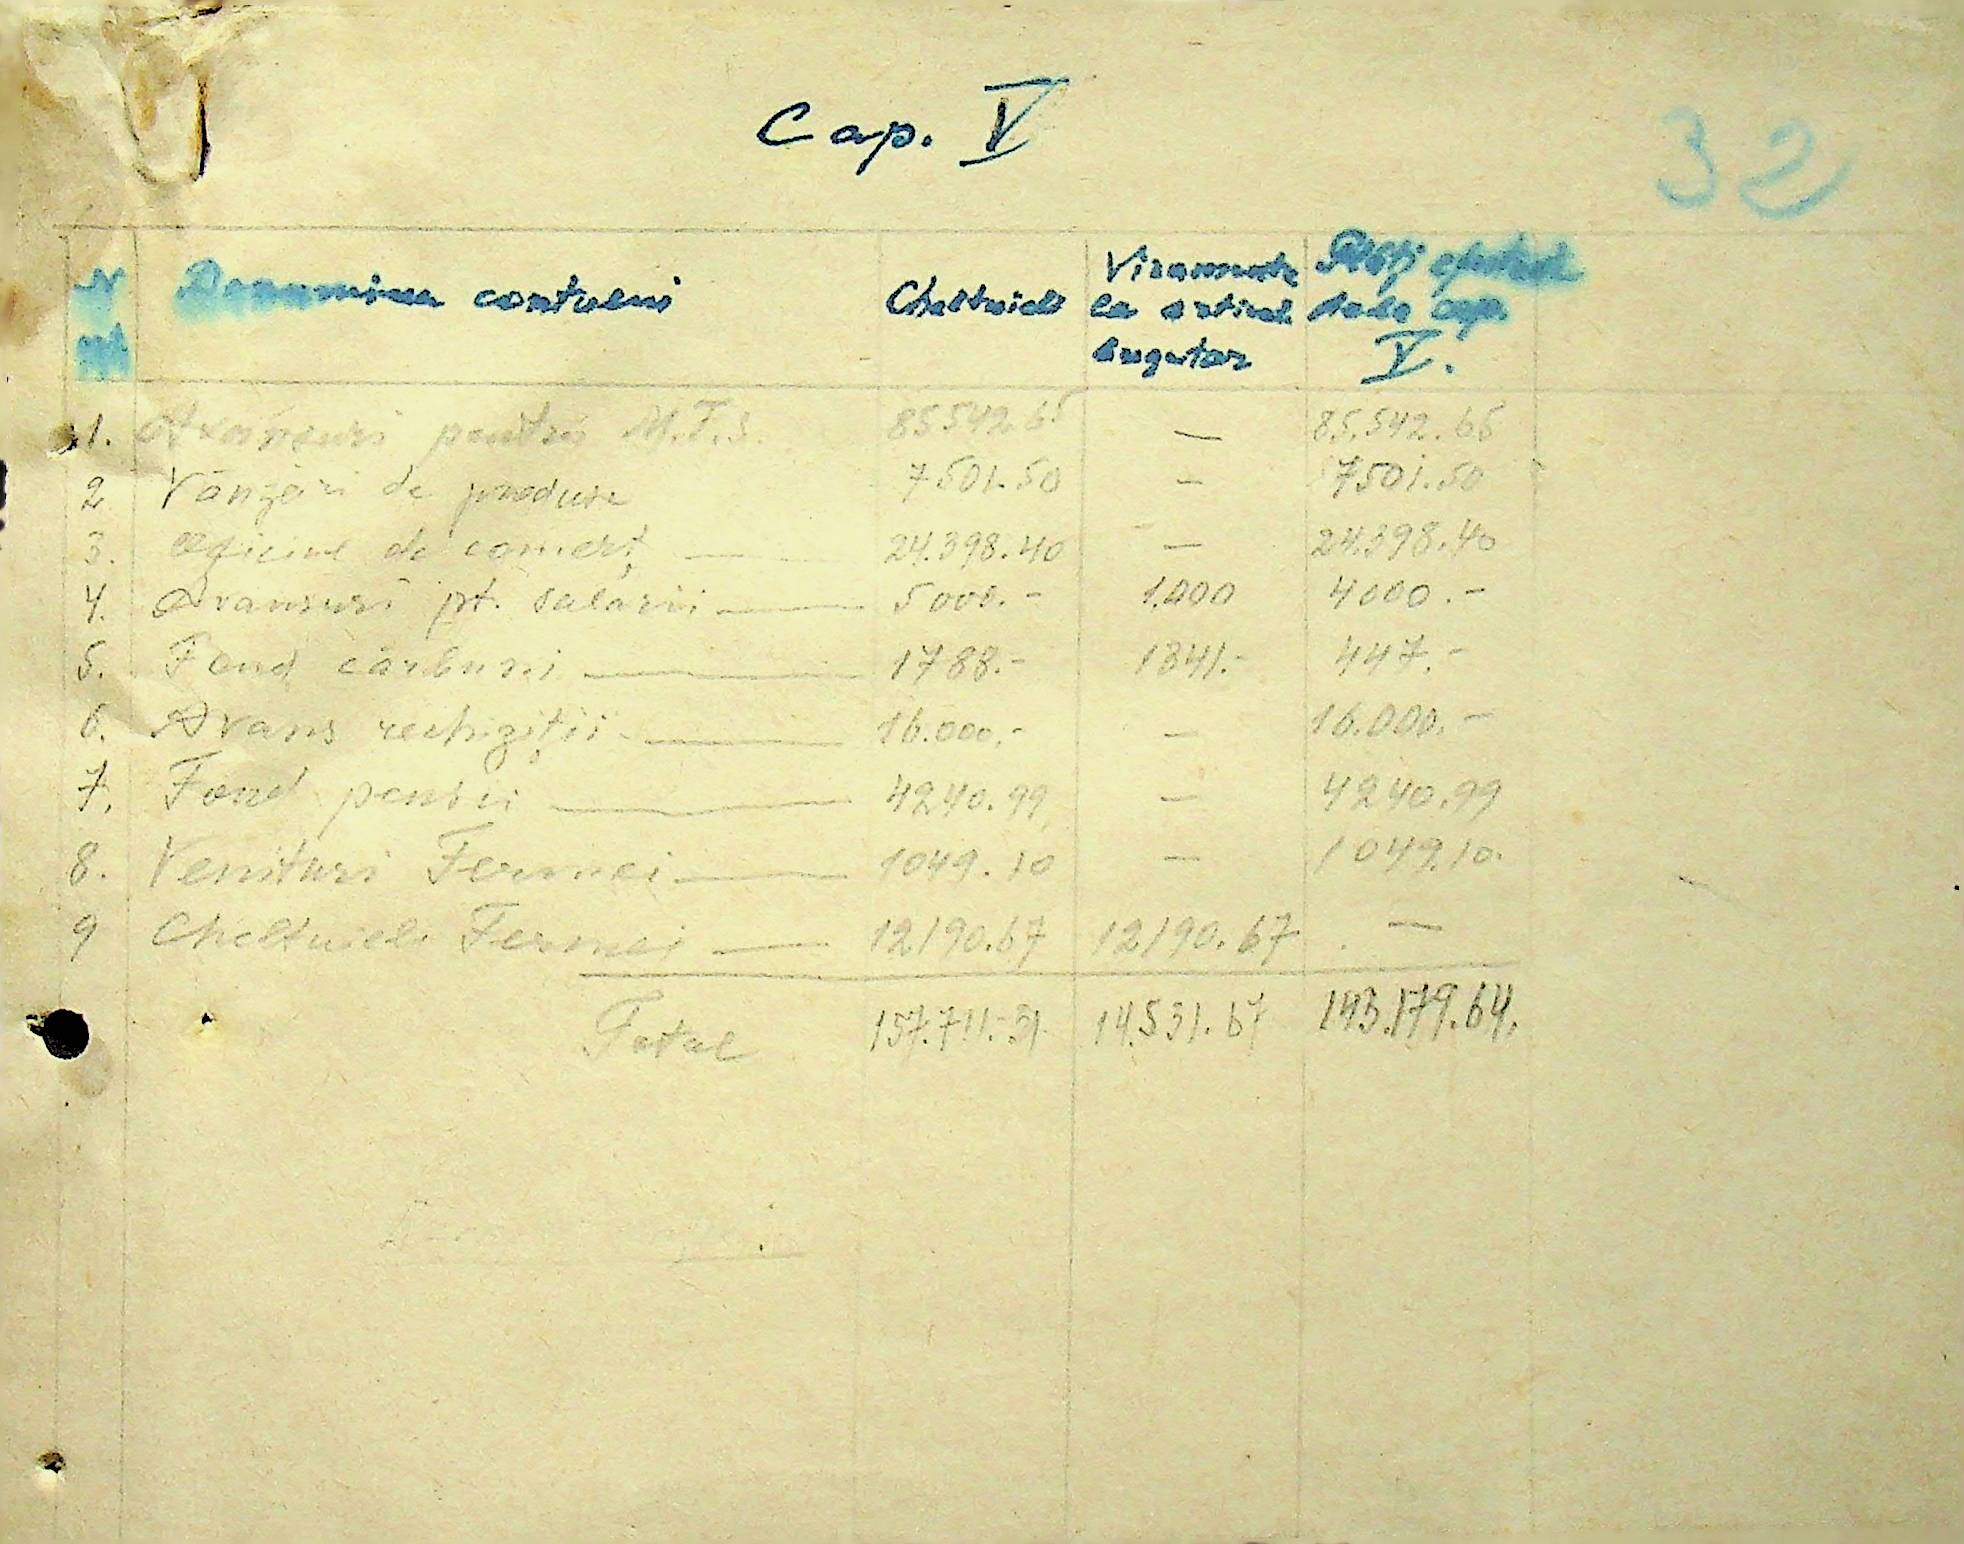 Cap. V
32
N Denumirea contului Cheltuieli Viramente Plăți efectuate
la articole dela cap.
bugetar V.
1. Avansuri pentru M.T.S. 85542.65 — 85.542.65
2 Vânzări de produse 7501.50 — 7501.50
3. Oficiul de comerț — 24.398.40 — 24.398.40
4. Avansuri pt. salarii — 5000.- 1.000 4000.-
5. Fond cărburi — 1788.- 1341.- 447.-
6. Avans rechiziții — 16.000.- — 16.000.-
7. Fond pensii — 4240.99 — 4240.99
8. Venituri Fermei — 1049.10 — 1049.10
9 Cheltuieli Fermei — 12190.67 12190.67 —
Total 157.711.31 14.531.67 143.179.64.